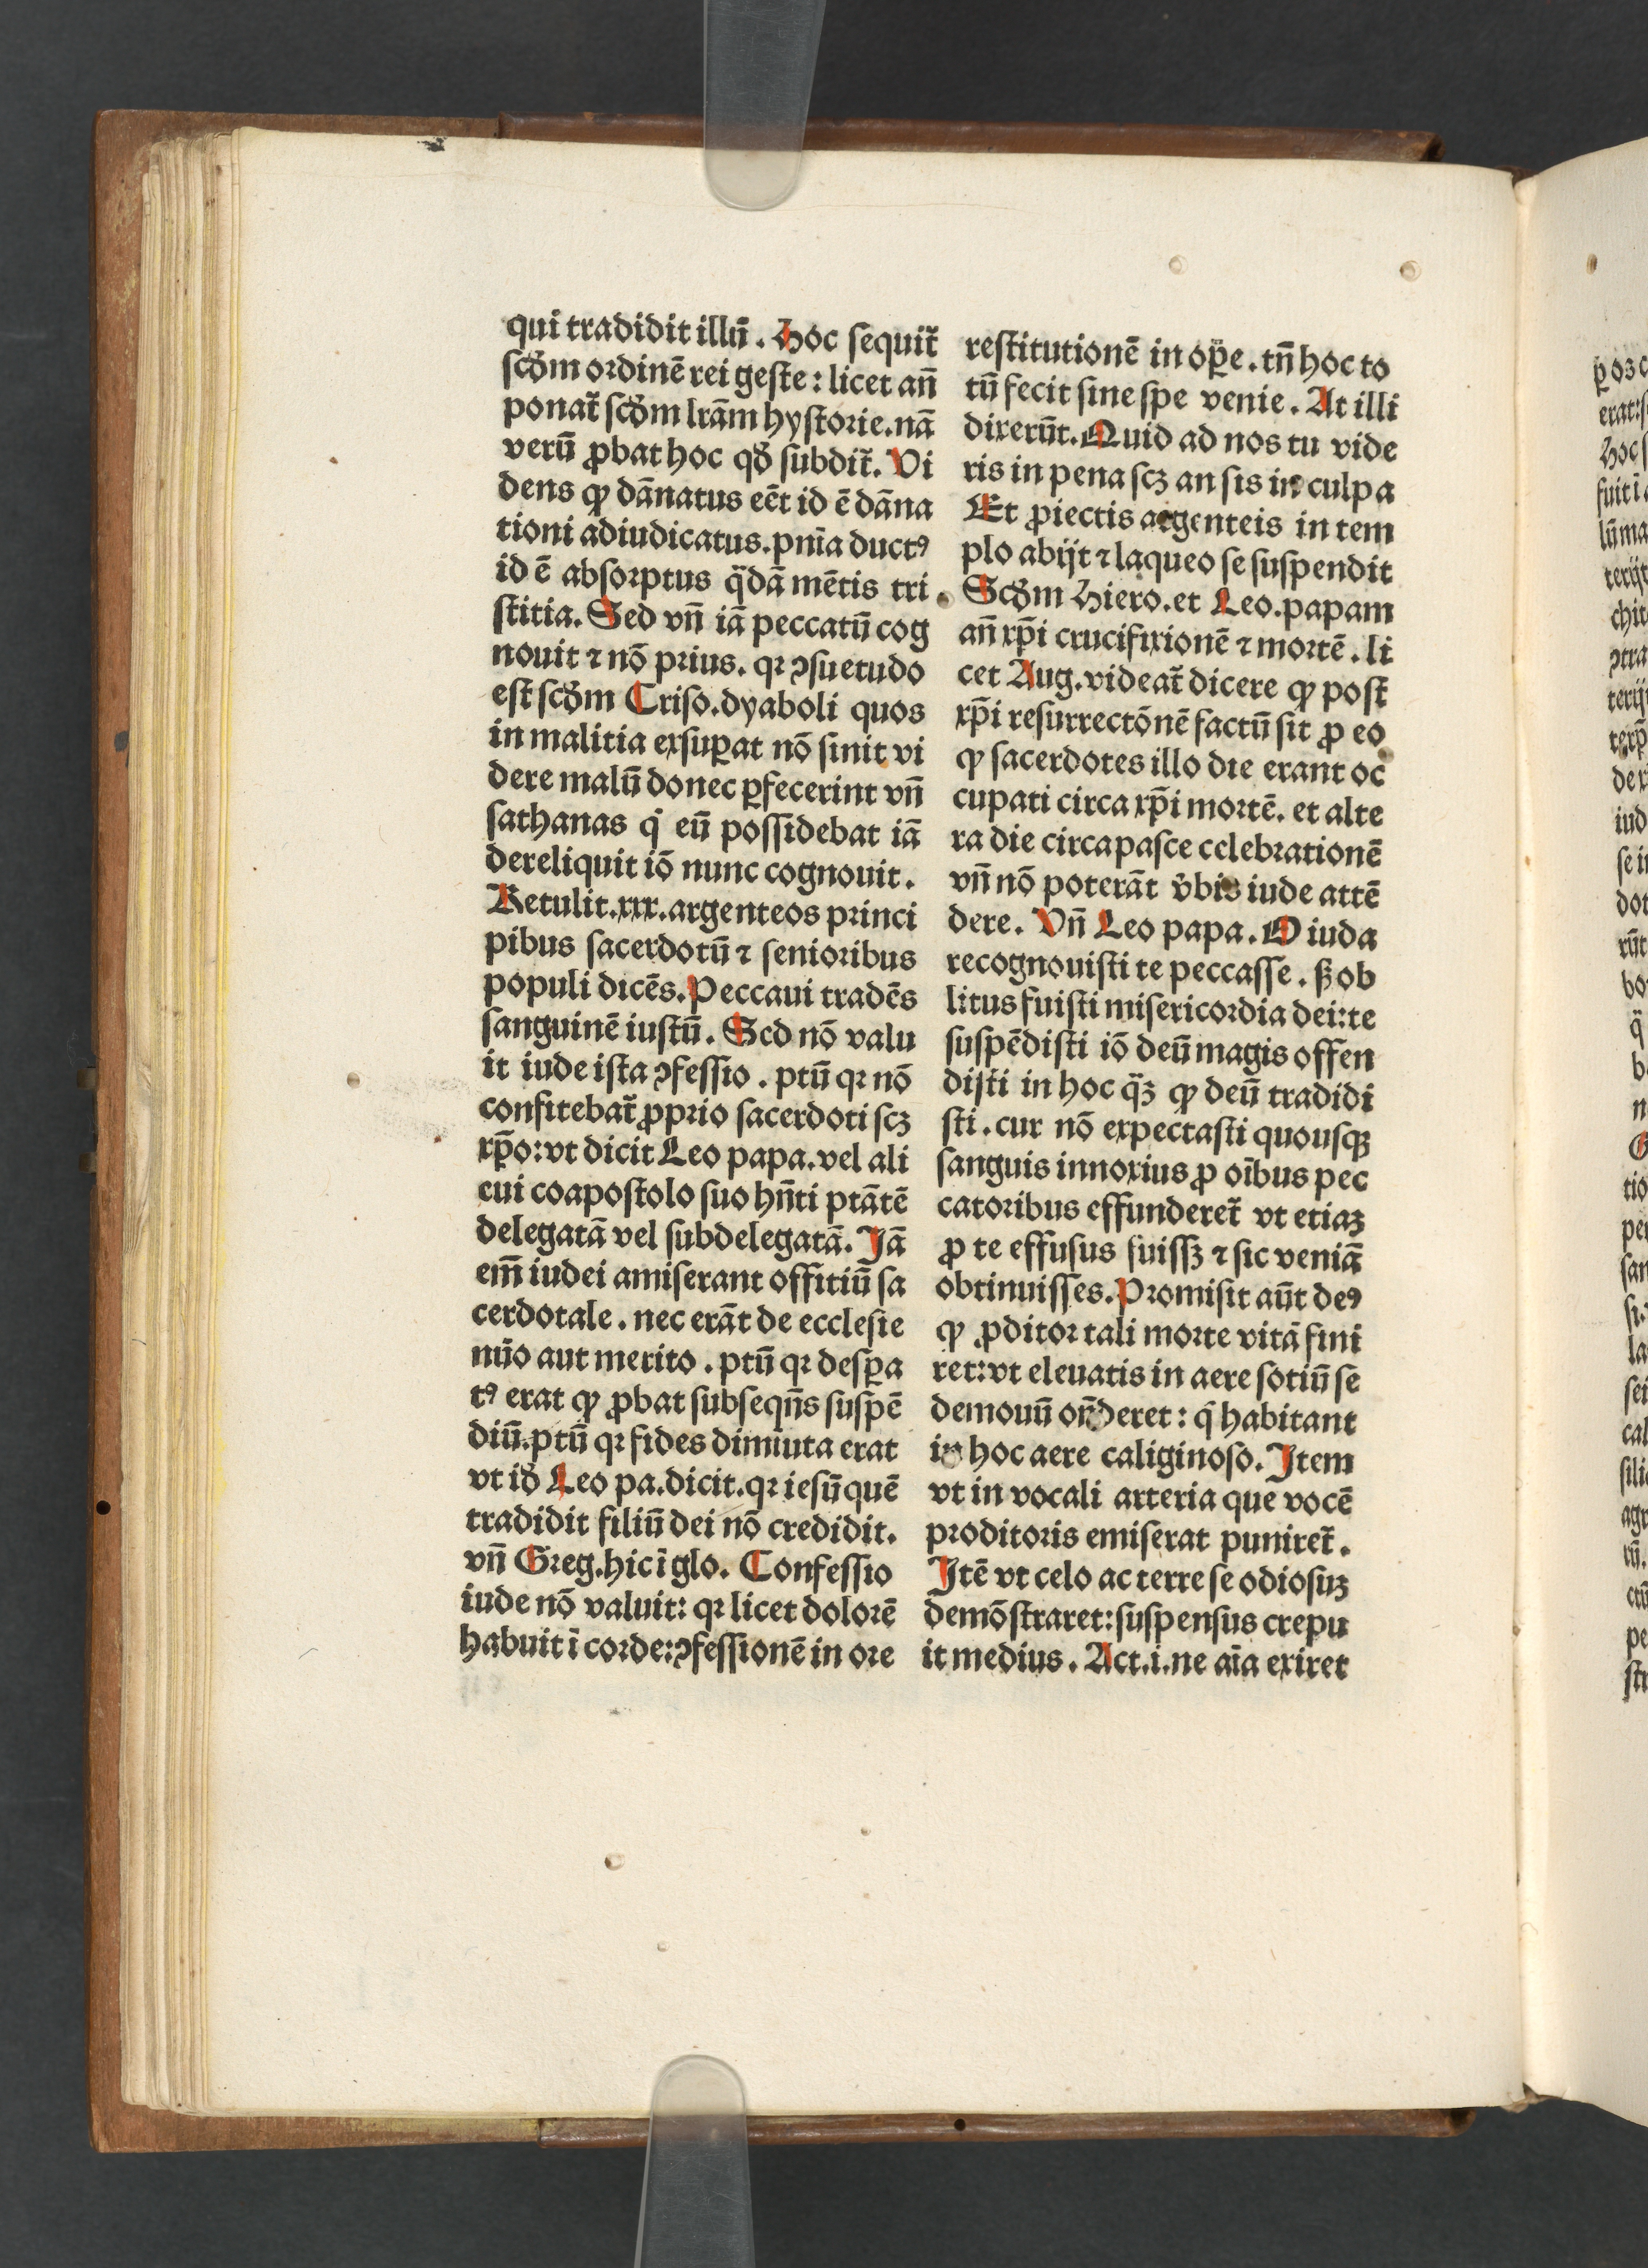 qui tradidit illū. Hoc ſequit᷑
ſcd̓m ordinē rei geſte: licet añ
ponat᷑ ſcd̓m lrām hyſtorie. nā
verū ꝓbat hoc qd̓ ſubdit᷑. Vi
dens ꝙ dānatus eēt id ē dāna
tioni adiudicatus. pnīa ductꝰ
id ē abſorptus q̈dā mētis tri
ſtitia. Sed vñ iā peccatū cog
nouit ⁊ nō prius. qꝛ ꝯſuetudo
eſt ſcd̓m Criſo. dyaboli quos
in malitia exſuꝑat nō ſinit vi
dere malū donec ꝑfecerint vñ
ſathanas q̇ eū poſſidebat iā
dereliquit iō nunc cognouit.
Retulit. xxx. argenteos princi
pibus ſacerdotū ⁊ ſenioribus
populi dicēs. Peccaui tradēs
ſanguinē iuſtū. Sed nō valu
it iude iſta ꝯfeſſio. ptū qꝛ nō
confitebat᷑ ꝓprio ſacerdoti ſcꝫ
xp̄o: vt dicit Leo papa. vel ali
cui coapoſtolo ſuo hn̄ti ptātē
delegatā vel ſubdelegatā. Jā
em̄ iudei amiſerant offitiū ſa
cerdotale. nec erāt de eccleſie
nūo aut merito. ptū qꝛ deſꝑa
tꝰ erat ꝙ ꝓbat ſubſeqn̄s ſuſpē
diū. ptū qꝛ fides diminuta erat
vt id̓ Leo pa. dicit. qꝛ ieſū quē
tradidit filiū dei nō credidit.
vñ Greg. hic ī glo. Confeſſio
iude nō valuit: qꝛ licet dolorē
habuit ī corde: ꝯfeſſionē in ore
reſtitutionē in oꝑe. tn̄ hoc to
tū fecit ſine ſpe venie. At illi
dixerūt. Quid ad nos tu vide
ris in pena ſcꝫ an ſis in culpa
Et ꝓiectis argenteis in tem
plo abijt ⁊ laqueo ſe ſuſpendit
Scd̓m Hiero. et Leo. papam
añ xp̄i crucifixionē ⁊ mortē. li
cet Aug. videat᷑ dicere ꝙ poſt
xp̄i reſurrectōnē factū ſit ꝓ eo
ꝙ ſacerdotes illo die erant oc
cupati circa xp̄i mortē. et alte
ra die circa paſce celebrationē
vñ nō poterāt v̓bis iude attē
dere. Vñ Leo papa. O iuda
recognouiſti te peccaſſe. ſꝫ ob
litus fuiſti miſericordia dei: te
ſuſpēdiſti iō deū magis offen
diſti in hoc q̈ꝫ ꝙ deū tradidi
ſti. cur nō expectaſti quouſqꝫ
ſanguis innoxius ꝓ oībus pec
catoribus effunderet᷑ vt etiaꝫ
ꝓ te effuſus fuiſſꝫ ⁊ ſic veniā
obtinuiſſes. Promiſit aūt deꝰ
ꝙ ꝓditor tali morte vitā fini
ret: vt eleuatis in aere ſotiū ſe
demonū on̄deret: q̇ habitant
in hoc aere caliginoſo. Jtem
vt in vocali arteria que vocē
proditoris emiſerat puniret᷑.
Jtē vt celo ac terre ſe odioſuꝫ
demōſtraret: ſuſpenſus crepu
it medius. Act. i. ne aīa exiret